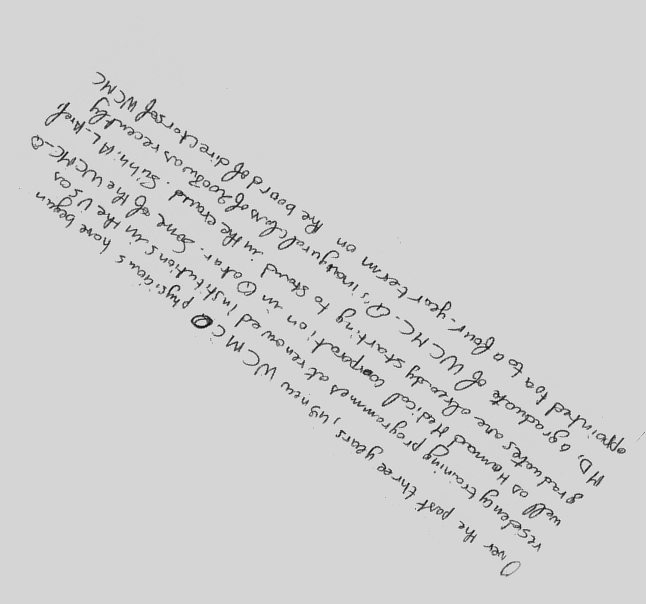 Over the past three years, 49 new WCMCQ physicians have began
residency training programmes at renowed institutions in the US as
well as Hamad Medical corporation in Qatar. Some of the WCMC-Q
graduates are already starting to stand in the crowd. Suhh. AL-Aref.
MD, a graduate of WCMC-Q's inaugural class of 2008 was recently
appointed to a to a four-year term on the board of directors of WCMC